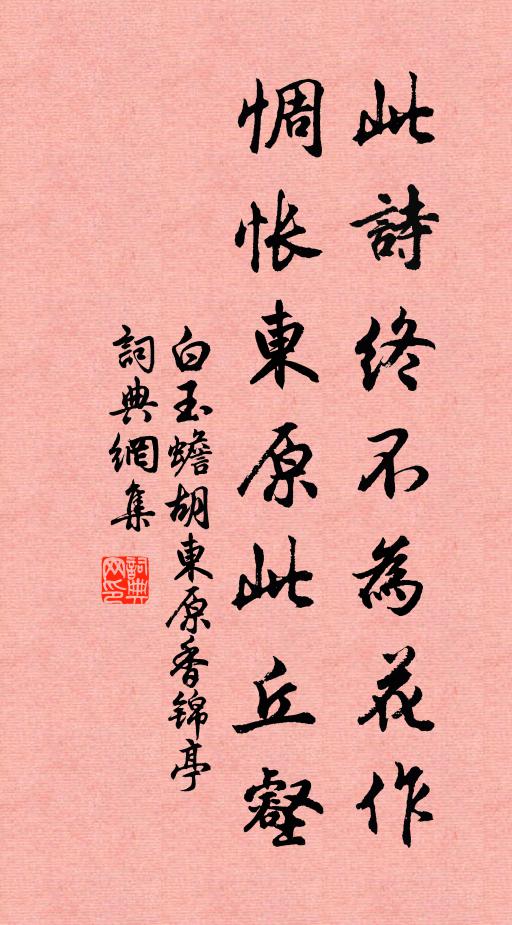 此詩终不為花作
惆怅東原此丘壑
白玉蟾胡東原香锦亭
詞典網集
詞典网印